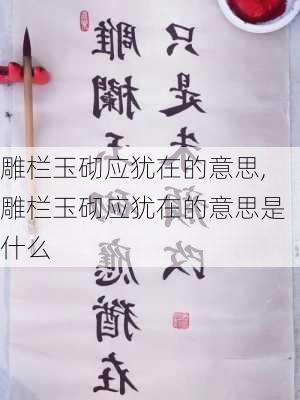 雕栏玉砌应犹在的意思,
雕栏玉砌应犹在的意思是
什么
雕欄玉砌應猶在
只是朱顏改